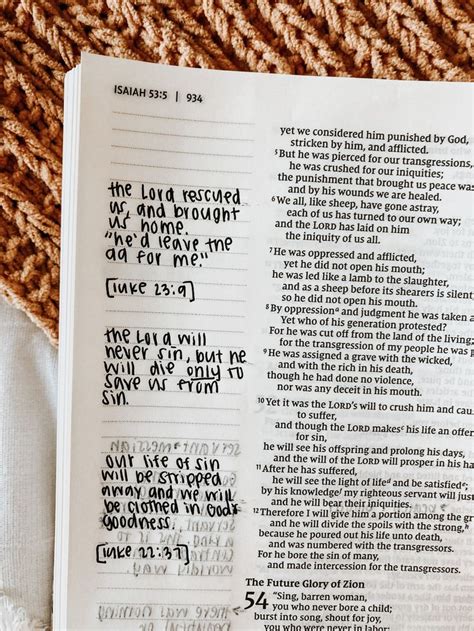 ISAIAH 53:5 | 934
the Lord rescued
us, and brought
us home.
"he'd leave the
99 for me."
[luke 23:9]
the Lord will
never sin, but he
will die only to
save us from
sin.
our life of sin
will be stripped
away and we will
be clothed in God's
goodness.
[luke 22:37]
yet we considered him punished by God,
stricken by him, and afflicted.
5 But he was pierced for our transgressions,
he was crushed for our iniquities;
the punishment that brought us peace was
and by his wounds we are healed.
6 We all, like sheep, have gone astray,
each of us has turned to our own way;
and the LORD has laid on him
the iniquity of us all.
7 He was oppressed and afflicted,
yet he did not open his mouth;
he was led like a lamb to the slaughter,
and as a sheep before its shearers is silent
so he did not open his mouth.
8 By oppression and judgment he was taken a
Yet who of his generation protested?
For he was cut off from the land of the living;
for the transgression of my people he was
9 He was assigned a grave with the wicked,
and with the rich in his death,
though he had done no violence,
nor was any deceit in his mouth.
10 Yet it was the LORD's will to crush him and cau
to suffer,
and though the LORD makes his life an offer
for sin,
he will see his offspring and prolong his days,
and the will of the LORD will prosper in his ha
11 After he has suffered,
he will see the light of life and be satisfied;
by his knowledge my righteous servant will just
and he will bear their iniquities.
12 Therefore I will give him a portion among the gr
and he will divide the spoils with the strong,
because he poured out his life unto death,
and was numbered with the transgressors.
For he bore the sin of many,
and made intercession for the transgressors.
The Future Glory of Zion
54 "Sing, barren woman,
you who never bore a child;
burst into song, shout for joy,
you who were never in labor;